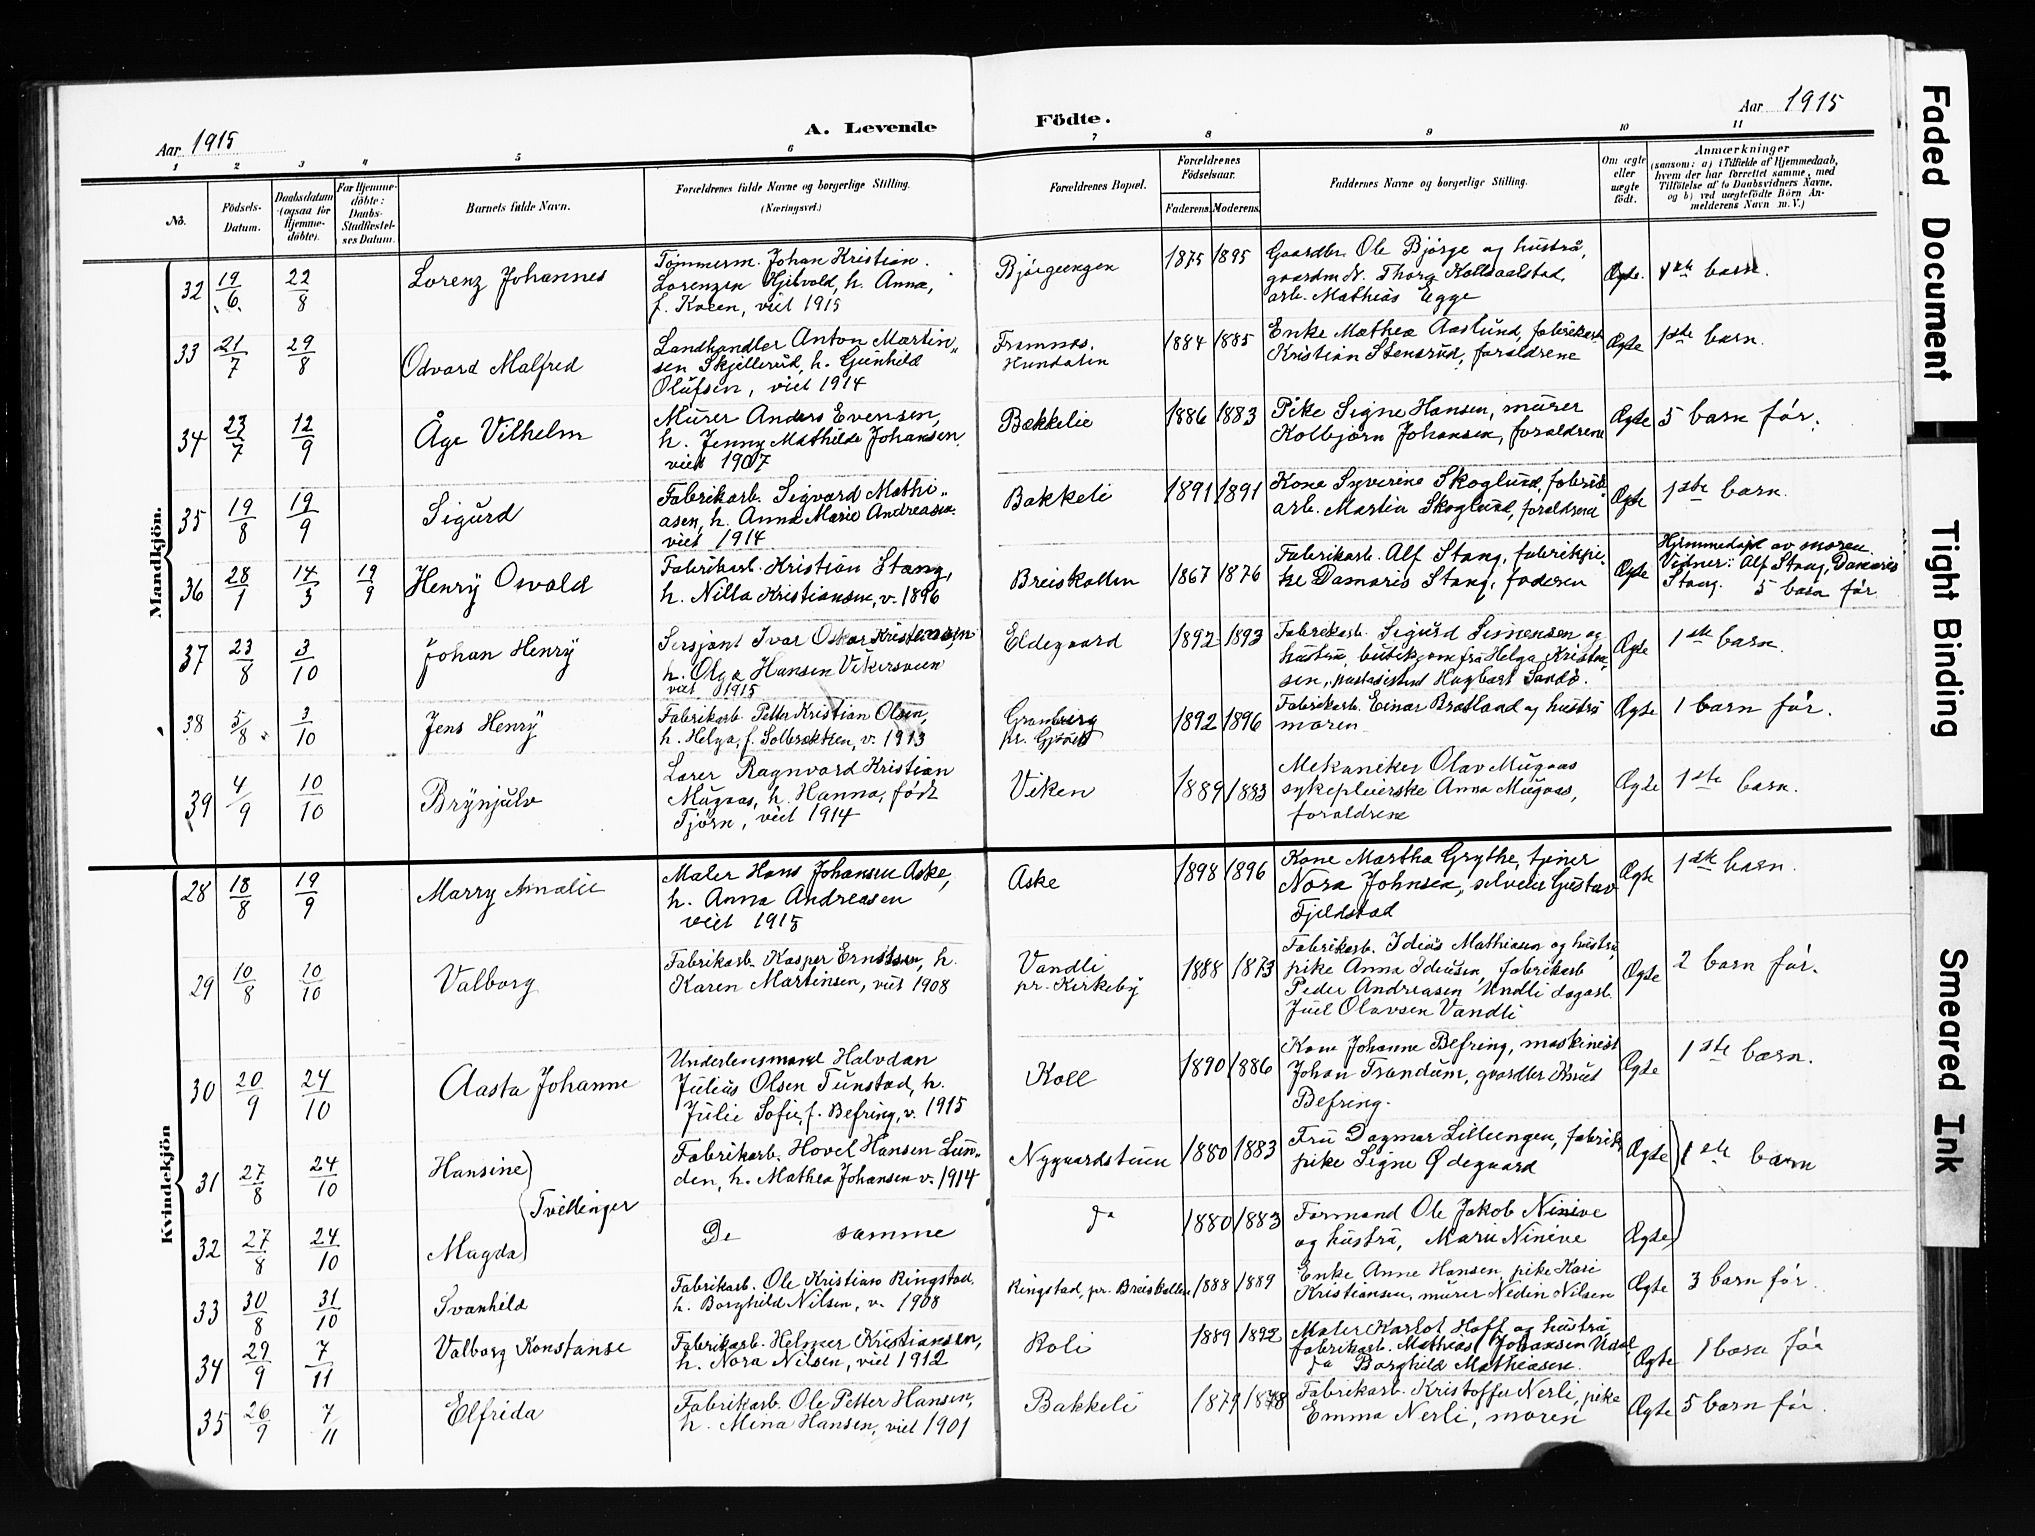 Aar 1915
A. Levende Födte.
Aar 1915
1 2 3 4 5 6 7 8 9 10 11
No.
Födsels-Datum.
Daabsdatum (ogsaa for Hjemme-döbte).
For Hjemme-döbte: Daabs-Stadfæstel-ses Datum.
Barnets fulde Navn.
Forældrenes fulde Navne og borgerlige Stilling. (Næringsvei.)
Forældrenes Bopæl.
Forældrenes Födselsaar.
Faderens. Moderens.
Faddernes Navne og borgerlige Stilling.
Om ægte eller uægte födt.
Anmærkninger
(saasom: a) i Tilfælde af Hjemmedaab,
hvem der har forrettet samme, med
Tilföielse af to Daabsvidners Navne,
og b) ved uægtefödte Börn An-
melderens Navn m. V.)
Mandkjön.
32 19/6 22/8 Lorenz Johannes
Tømmerm. Johan Kristian
Lorenzen Hjelvold, h. Anna,
f. Koen, viet 1915
Bjørgeengen 1875 1895
Gaardbr. Ole Bjørge og hustru,
gaardm. N. Thorg Kolbaalstad,
arb. Mathias Egge
Ægte. 1ste barn.
33 21/7 29/8 Odvard Malfred
Landhandler Anton Martin-
sen Skjellerud, h. Gunhild
Olufsen, viet 1914
Framnæs, Hundalen 1884 1885
Enke Mathea Aaslund, fabrikarb
Kristian Stensrud, forældrene
Ægte 1ste barn.
34 23/7 12/9 Åge Vilhelm
Murer Anders Evensen,
h. Jenny Mathilde Johansen,
viet 1907
Bækkelie 1886 1883
Pike Signe Hansen, murer
Kolbjørn Johansen, forældrene
Ægte 5 barn før.
35 19/8 19/9 Sigurd
Fabrikarb. Sigvard Mathi-
asen, h. Anna Marie Andreasen
viet 1914
Bakkeli 1891 1891
Kone Syverine Skoglund, fabrik
arb. Martin Skoglund, forældrene
Ægte 1ste barn.
36 28/1 14/3 19/9 Henry Osvald
Fabrikarb. Kristian Stang,
h. Nilla Kristiansen, v. 1896
Breiskallen 1867 1876
Fabrikarb. Alf Stang, fabrikpi-
ke Damaris Stang, faderen
Ægte
Hjemmedøpt av moren.
Vidner: Alf Stang, Damaris
Stang. 5 barn før
37 23/8 3/10 Johan Henry
Sersjant Ivar Oskar Kristensen
h. Olga Hansen Vikersveen
viet 1915
Eldegaard 1892 1893
Fabrikarb. Sigurd Simensen og
hustru, butikjomfru Helga Kristen-
sen, postasistent Hagbart Sandø.
Ægte 1ste barn.
38 5/8 3/10 Jens Henry
Fabrikarb. Petter Kristian Olsen,
h. Helga, f. Solbrækken, v. 1913
Granberg
pr. Gjøvik 1892 1896
Fabrikarb. Einar Bratland og hustru
moren
Ægte 1 barn før.
39 4/9 10/10 Brynjulv
Lærer Ragnvard Kristian
Mugaas, h. Hanna, født
Tjørn, viet 1914
Viken 1889 1883
Mekaniker Olav Mugaas
sykepleierske Anna Mugaas,
forældrene
Ægte 1ste barn.
Kvindekjön
28 18/8 19/9 Marry Amalie
Maler Hans Johansen Aske,
h. Anna Andreasen
viet 1915
Aske 1898 1896
Kone Martha Grythe, tjener
Nora Johnsen, selveier Gustav
Fjeldstad
Ægte 1ste barn.
29 10/8 10/10 Valborg
Fabrikarb. Kasper Ernstsen, h.
Karen Martinsen, viet 1908
Vandli
pr. Kirkeby 1888 1873
Fabrikarb. Ideus Mathiasen og hustru,
pike Anna Ideusen, fabrikarb
Peder Andreasen Vndli dagarb.
Juel Olavsen Vandli
Ægte 2 barn før.
30 20/9 24/10 Aasta Johanne
Underlensmand Halvdan
Julius Olsen Tunstad, h.
Julie Sofie, f. Befring, v. 1915
Koll 1890 1886
Kone Johanne Befring, maskinist
Johan Trandum, gaardbr Knut
Befring.
Ægte 1ste barn.
31 27/8 24/10 Hansine
Tvillinger
Fabrikarb. Hovel Hansen Lun-
den, h. Mathea Johansen v. 1914
Nygaardstuen 1880 1883
Fru Dagmar Lilleengen, fabrik
pike Signe Ødegaard
Ægte 1ste barn
32 27/8 24/10 Magda
De samme
do 1880 1883
Formand Ole Jakob Ninive
og hustru, Marie Ninive
Ægte
33 30/8 31/10 Svanhild
Fabrikarb. Ole Kristian Ringstad,
h. Borghild Nilsen, v. 1908
Ringstad, pr. Breiskallen 1888 1889
Enke Anne Hansen, pike Kari
Kristiansen, murer Nedin Nilsen
Ægte 3 barn før.
34 29/9 7/11 Valborg Konstanse
Fabrikarb. Helmer Kristiansen,
h. Nora Nilsen, viet 1912
Roli 1889 1892
Maler Karlot Hoff og hustru
fabrikarb. Mathias Johansen Udal
da Borghild Mathiasen.
Ægte 1 barn før
35 26/9 7/11 Elfrida
Fabrikarb. Ole Petter Hansen,
h. Mina Hansen, viet 1901
Bakkeli 1879 1878
Fabrikarb. Kristoffer Nerli, pike
Emma Nerli, moren
Ægte 5 barn før.
Faded Document
Tight Binding
Smeared Ink